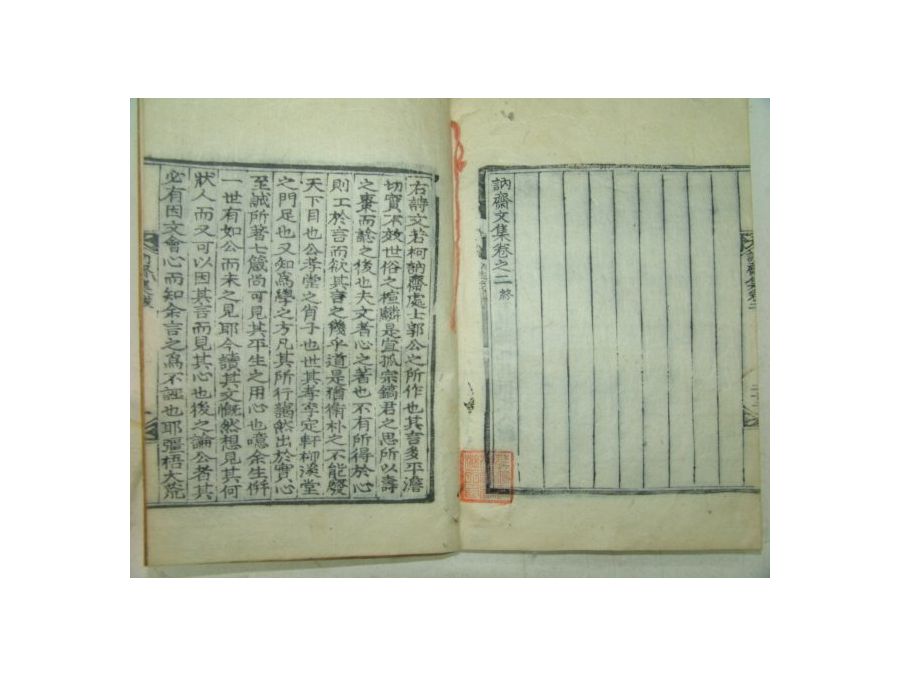 訥齋文集卷之二終
右詩文若柯訥齋處士郭公之所作也其言多平澹
切實不效世俗之楦麟是宜孤宗鎬君之思所以壽
之棗而諗之後也夫文者心之著也不有所得於心
則工於言而欲其言之幾乎道是猶衛朴之不能發
天下目也公孝堂之肖子也世其孝學定軒柳溪堂
之門足也又知為學之方凡其所行藹然出於實心
至誠所著七箴尚可見其平生之用心也噫余生僻
一世有如公而未之見耶今讀其文慨然想見其何
狀人而又可以因其言而見其心也後之論公者其
必有因文會心而知余言之為不誣也耶彊梧大荒